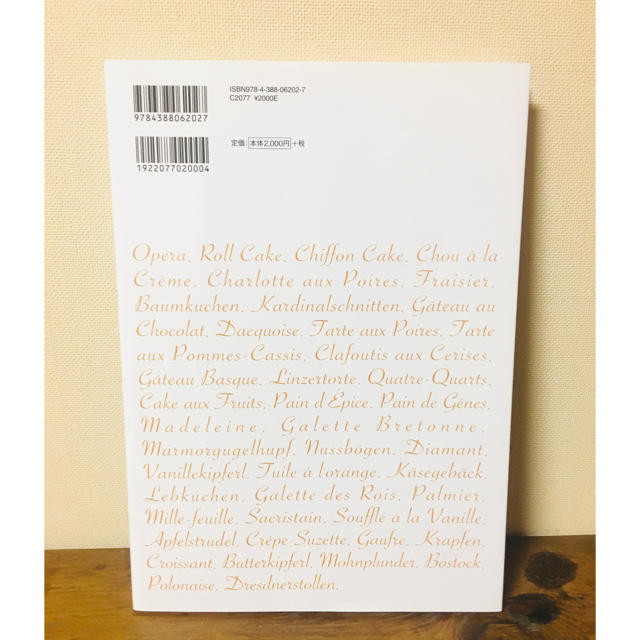 ISBN978-4-388-06202-7
C2077 ¥2000E
9784388062027
定価:本体2,000円+税
1922077020004
Opéra, Roll Cake, Chiffon Cake, Chou à la
Crème, Charlotte aux Poires, Fraisier,
Baumkuchen, Kardinalschnitten, Gâteau au
Chocolat, Dacquoise, Tarte aux Poires, Tarte
aux Pommes-Cassis, Clafoutis aux Cerises,
Gâteau Basque, Linzertorte, Quatre-Quarts,
Cake aux Fruits, Pain d'Épice, Pain de Gênes,
Madeleine, Galette Bretonne,
Marmorgugelhupf, Nussbögen, Diamant,
Vanillekipferl, Tuile à l'orange, Käsegebäck,
Lebkuchen, Galette des Rois, Palmier,
Mille-feuille, Sacristain, Soufflé à la Vanille,
Apfelstrudel, Crêpe Suzette, Gaufre, Krapfen,
Croissant, Butterkipferl, Mohnplunder, Bostock,
Polonaise, Dresdnerstollen.